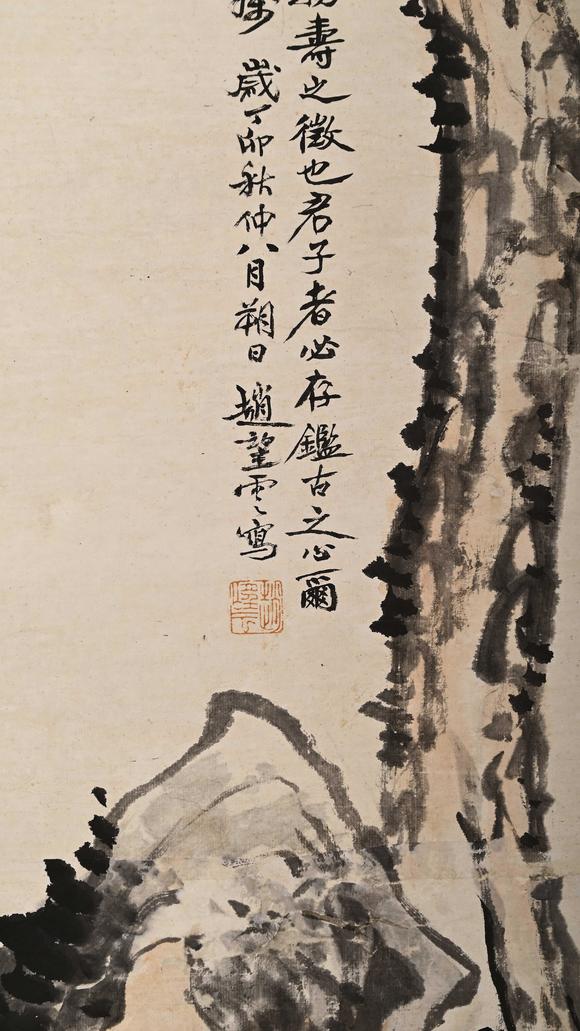 壽之徵也君子者必存鑑古之心爾
歲丁卯秋仲八月朔日 趙望雲寫